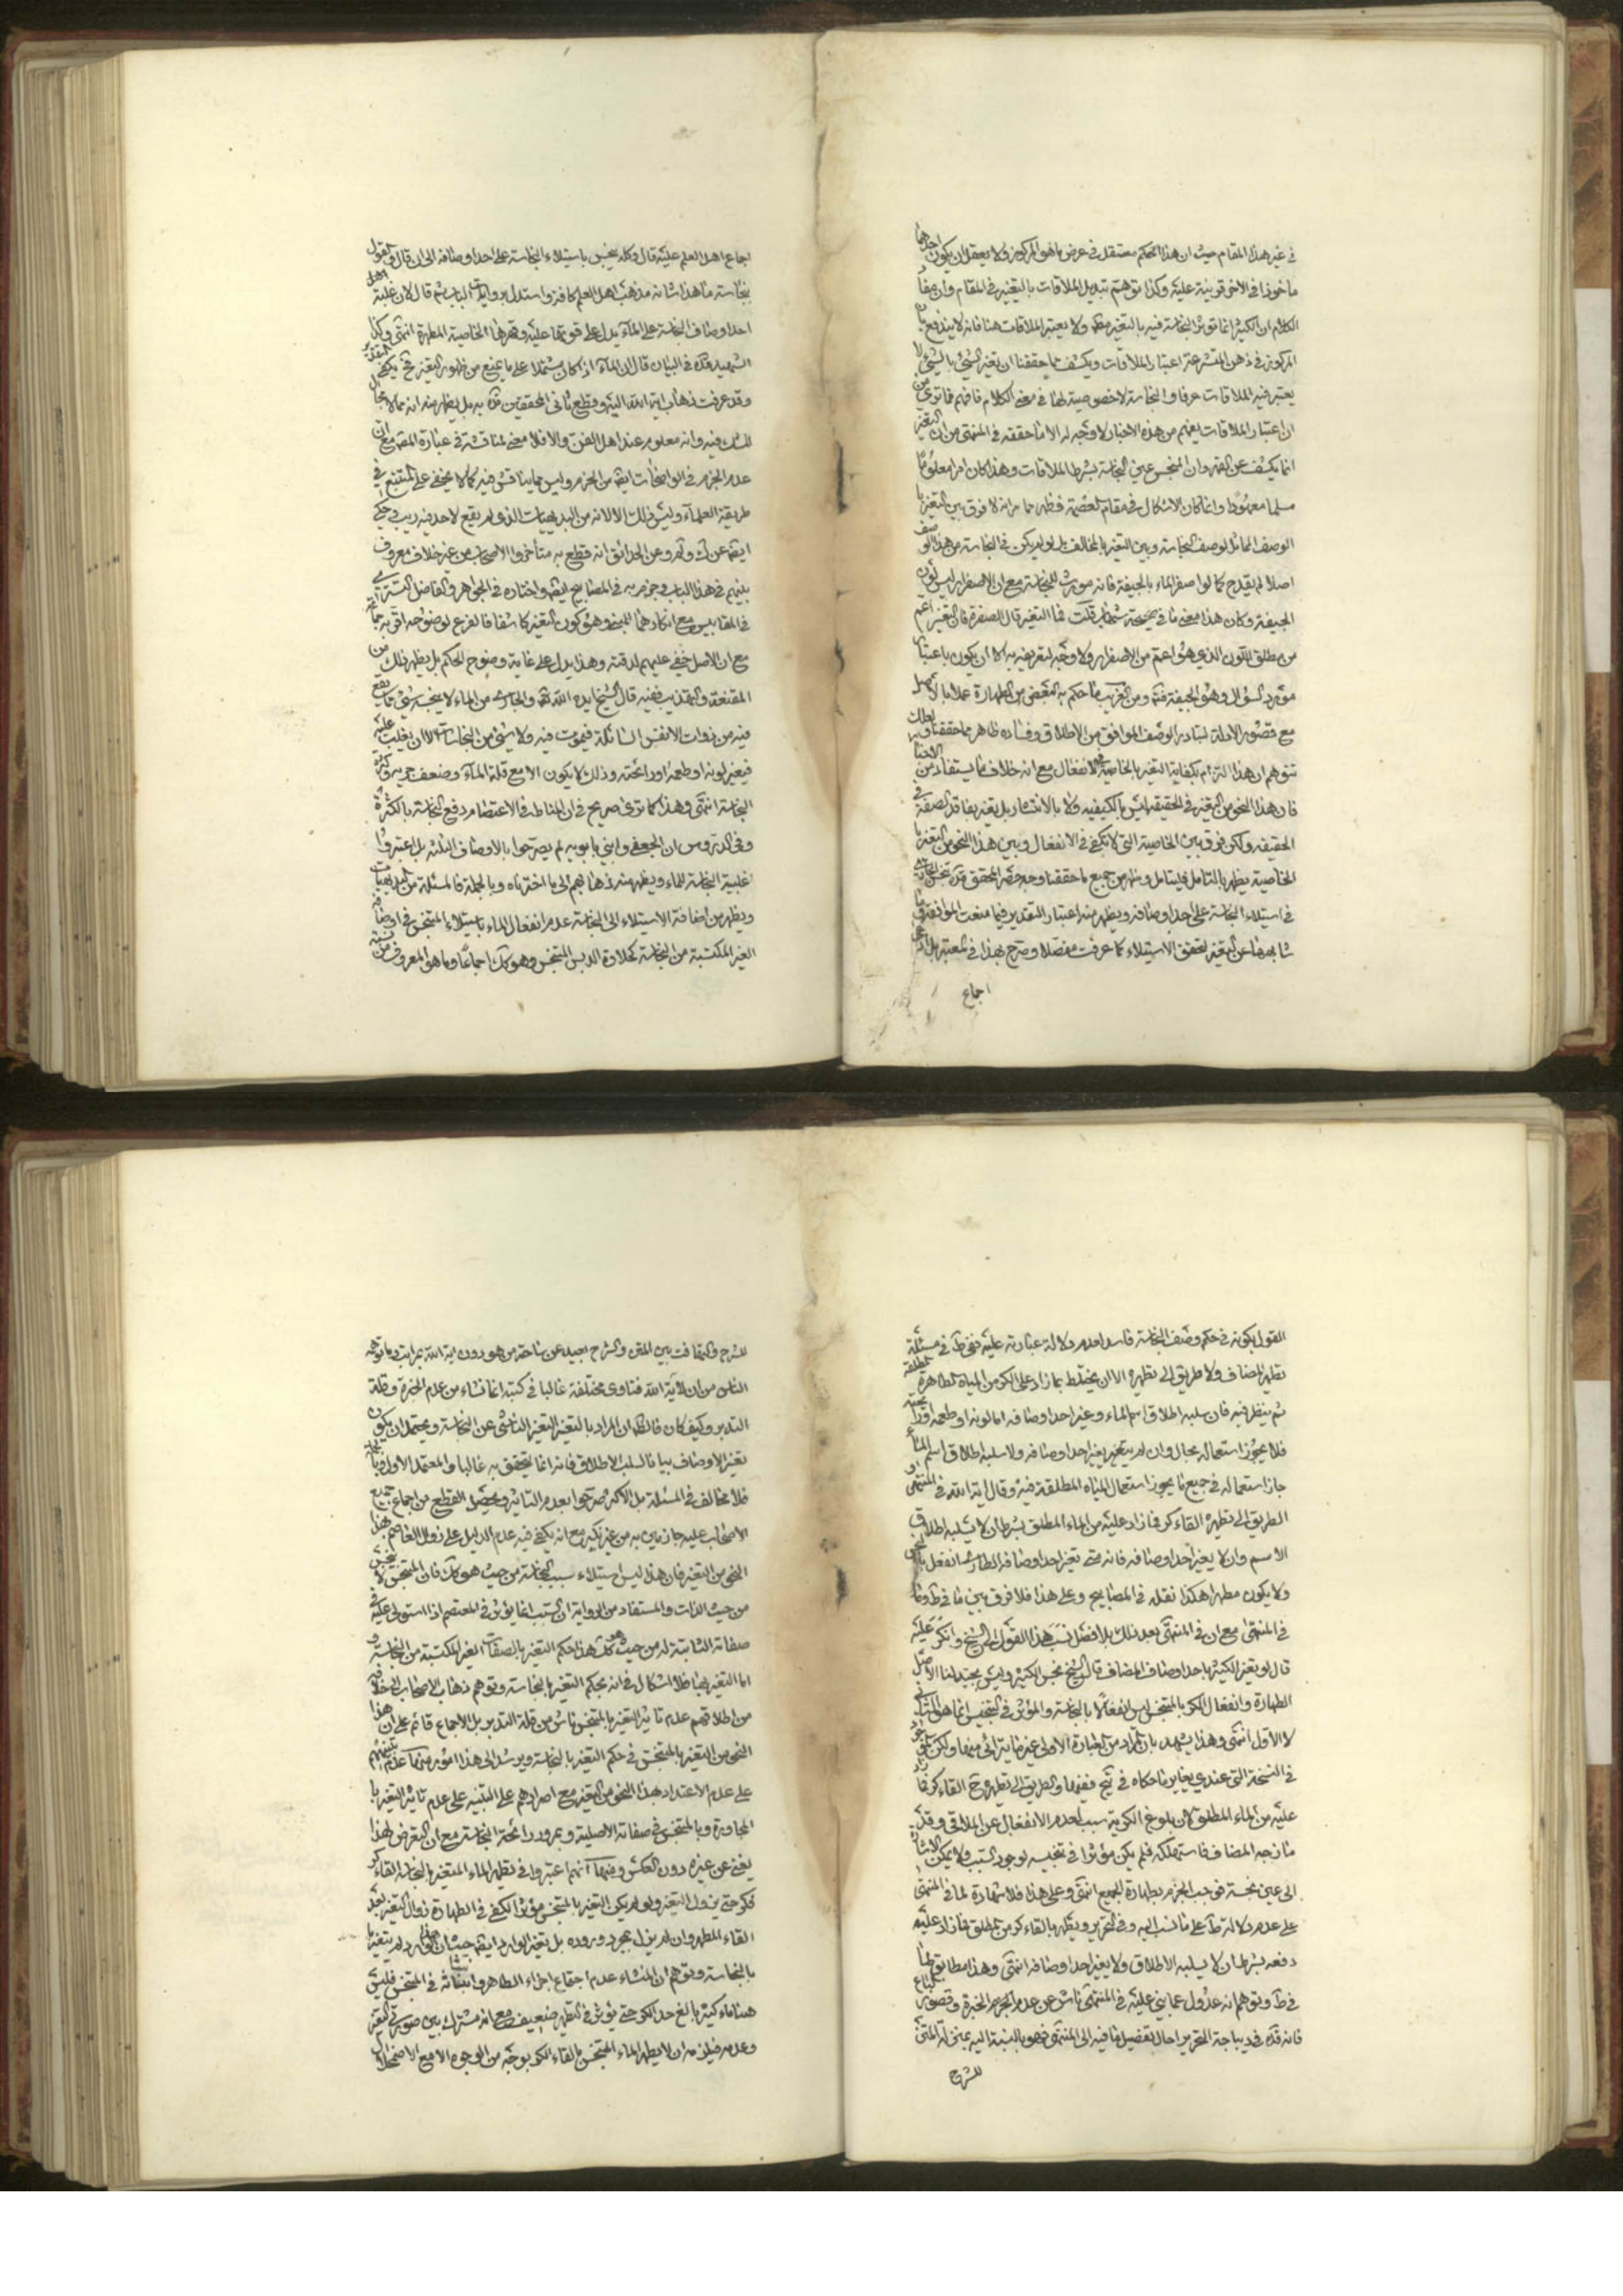 في غير هذا المقام حيث ان هذا الحكم مستقل في عرض ما هو المركوز ولا يعقل ان يكون احدهما
ماخوذا في الاخر قرينة عليه وكذا توهم تبديل الملاقات بالتغير في المقام وان مفاد
الكلام ان الكثير انما تؤثر النجاسة فيه بالتغير مطلقا ولا يعتبر الملاقات هنا فانه لا يندفع بان
المركوزة في ذهن المتشرعة اعتبار الملاقات ويكشف عما حققنا ان تغير الشيء بالشيء لا
يعتبر فيه الملاقات عرفا والنجاسة لا خصوصية لها في معنى الكلام فافهم فما ترى من
ان اعتبار الملاقات يفهم من هذه الاخبار لا وجه له الا ما حققه في المنتهى من ان التغير
انما يكشف عن القهر وان المنجس عين النجاسة بشرط الملاقات وهذا كان امرا معلوما
مسلما معهودا وانما كان الاشكال في مقام العصمة فظهر مما مر انه لا فرق بين التغير با
الوصف المماثل لوصف النجاسة وبين التغير بالمخالف بل لو لم يكن في النجاسة من هذا الوصف
اصلا لم يقدح كما لو اصفر الماء بالجيفة فانه مورث للنجاسة مع ان الاصفرار ليس لون
الجيفة وكان هذا معنى ما في صحيحة شهاب قلت فما التغير قال الصفرة فان التغير اعم
من مطلق اللون الذي هو اعم من الاصفرار ولا وجه لتعريفه به الا ان يكون باعتبار
مورد السؤال وهو الجيفة فتم ومن الغريب ما حكم به البعض من الطهارة عملا بالاصل
مع قصور الادلة لتبادر الوصف الموافق من الاطلاق وفساده ظاهر مما حققنا وربما
تتوهم ان هذا التزام بكفاية التغير بالخاصية في الانفعال مع انه خلاف ما يستفاد من الاخبار
فان هذا النحو من التغير في الحقيقة ليس بالكيفية ولا بالانتشار بل تغير بفاقد الصفة في
الحقيقة ولكن فرق بين الخاصية التي لا تكفي في الانفعال وبين هذا النحو من التغير با
الخاصية يظهر بالتامل فليتامل وظهر من جميع ما حققنا وجه حصر المحقق قده تنجس الجاري
في استيلاء النجاسة على احد اوصافه ويظهر منه اعتبار التقدير فيما منعت الموافقة وما
شابهها عن التغير لتحقق الاستيلاء كما عرفت مفصلا وصرح بهذا في المعتبر بل ادعى
اجماع
اجماع اهل العلم عليه قال وكله ينجس باستيلاء النجاسة على احد اوصافه الى ان قال والقول
بنجاسة ما هذا شانه مذهب اهل العلم كافة واستدل بروايات الباب ثم قال لان غلبة
احد اوصاف النجاسة على الماء يدل على قوتها عليه وقهرها الخاصية المطهرة انتهى وكذا
الشهيد قده في البيان قال ان الماء اذا كان مشتملا على ما يمنع من ظهور التغير فح يكفي التقدير
وقد عرفت ذهاب اية الله اليه وقطع ثاني المحققين قده به بل يظهر منه انه مما لا مجال
للشك فيه وانه معلوم عند اهل الفن والا فلا معنى لمناقشته في عبارة المصنف مع ان
عدم الجزم في الواضحات ايضا من الحزم وليس مما يناقش فيه كما لا يخفى على المتتبع في
طريقة العلماء وليس ذلك الا لانه من البديهيات الذي لم يقع لاحد فيه ريب وحكي
ايضا عن ك ولم وعن الحدائق انه قطع به متأخروا الاصحاب من غير خلاف معروف
بينهم في هذا الباب وجزم به في المصابيح ايضا واختاره في الجواهر والفاضل التستري
في المقابيس مع انكارهما للمبنى وهو كون التغير كاشفا فالفرع لوضوحه اقر به جماعة
مع ان الاصل خفي عليهم لدقته وهذا يدل على غاية وضوح الحكم بل يظهر ذلك من
المقنعة والتهذيب ففيه قال الشيخ ايده الله تعالى والجاري من الماء لا ينجسه شيء مما يقع
فيه من ذوات الانفس السائلة فيموت فيه ولا شيء من النجاسات الا ان يغلب عليه
فيغير لونه او طعمه او رائحته وذلك لا يكون الا مع قلة الماء وضعف جريه وكثرة
النجاسة انتهى وهذا كما ترى صريح في ان المناط في الاعتصام دفع النجاسة بالكثرة
وفي الدروس ان الجعفي وابني بابويه لم يصرحوا بالاوصاف الثلثة بل اعتبروا
اغلبية النجاسة للماء ويظهر منه ذهابهم الى ما اخترناه وبالجملة فالمسئلة من البديهيات
ويظهر من اضافة الاستيلاء الى النجاسة عدم انفعال الماء باستيلاء المتنجس في اوصافه
الغير المكتسبة من النجاسة كحلاوة الدبس المتنجس وهو كك اجماعا وما هو المعروف من نسبة
القول بكونه في حكم وصف النجاسة فاسد لعدم دلالة عبارته عليه ففي ط في مسئلة
تطهير المضاف ولا طريق الى تطهيره الا ان يختلط بما زاد على الكر من المياه الطاهرة المطلقة
ثم ينظر فيه فان سلبه اطلاق اسم الماء وغير احد اوصافه اما لونه او طعمه او رائحته
فلا يجوز استعماله بحال وان لم يتغير بغير احد اوصافه ولا سلبه اطلاق اسم الماء
جاز استعماله في جميع ما يجوز استعمال المياه المطلقة فيه وقال اية الله في المنتهى
الطريق الى تطهيره القاء كر فما زاد عليه من الماء المطلق بشرط ان لا يسلبه اطلاق
الاسم وان لا يغير احد اوصافه فانه متى تغير احد اوصافه الطاري انفعل بالنجس
ولا يكون مطهرا هكذا نقله في المصابيح وعلى هذا فلا فرق بين ما في ط وما
في المنتهى مع ان في المنتهى بعد ذلك بلا فصل نسب هذا القول الى الشيخ وانكر عليه
قال لو تغير الكثير باحد اوصاف المضاف قال الشيخ نجس الكثير وليس بجيد لنا الاصل
الطهارة وانفعال الكر بالمتنجس ليس انفعالا بالنجاسة والمؤثر في التنجيس انما هو الثاني
لا الاول انتهى وهذا يشهد بان المراد من العبارة الاولى غير ما يترائى منها ولكن
في النسخة التي عندي يغاير ما حكاه في يح ففيها والطريق الى تطهيره ح القاء كر فما زاد
عليه من الماء المطلق لان بلوغ الكرية سبب لعدم الانفعال عن الملاقي وقد
مازجه المضاف فاستهلكه فلم يكن مؤثرا في تنجيسه لوجود السبب ولا يمكن الاشارة
الى عين نجسة فوجب الجزم بطهارة الجميع انتهى وعلى هذا فلا شهادة لما في المنتهى
على عدم دلالة ط على ما نسب اليه وفي التحرير ويطهر بالقاء كر من المطلق فما زاد عليه
دفعه بشرط ان لا يسلبه الاطلاق ولا يغير احد اوصافه انتهى وهذا مطابق لما
في ط وتوهم انه عدول عما بنى عليه في المنتهى ناش عن عدم الخبرة وقصور الباع
فانه قده في ديباجة التحرير احال تفصيل ما فيه الى المنتهى فهو بالنسبة اليه بمنزلة المتن
للشرح
للشرح والتهافت بين المتن والشرح بعيد عن ساحة من هو دون اية الله بمراتب وما توهمه
الناس من ان لاية الله فتاوى مختلفة غالبا في كتبه انما نشاء من عدم الخبرة وقلة
التدبر وكيف كان فالظ ان المراد بالتغير التغير الناشي عن النجاسة ويحتمل ان يكون
تغير الاوصاف بيانا لسلب الاطلاق فانه انما يتحقق به غالبا والمعتمد الاول وبالجملة
فلا مخالف في المسئلة بل الاكثر صرحوا بعدم التاثير ويحصل القطع من اجماع جميع
الاصحاب عليه جازمين به من غير نكير مع انه يكفي فيه عدم الدليل على زوال العاصم بهذا
النحو من التغير فان هذا ليس استيلاء سبب النجاسة من حيث هو كك فان المتنجس لا ينجس
من حيث الذات والمستفاد من الرواية ان السبب انما يؤثر في المعتصم اذا استولى عليه في
صفاته الثابتة له من حيث هو كك هذا حكم التغير بالصفات الغير المكتسبة من النجاسة و
اما التغير بها فلا اشكال في انه بحكم التغير بالنجاسة وتوهم ذهاب الاصحاب الى خلافه
من اطلاقهم عدم تاثير التغير بالمتنجس ناش من قلة التدبر بل الاجماع قائم على ان هذا
النحو من التغير بالمتنجس في حكم التغير بالنجاسة ويرشد الى هذا امور منها عدم تنبيههم
على عدم الاعتداد بهذا النحو من التغير مع اصرارهم على التنبيه على عدم تاثير التغير با
المجاورة وبالمتنجس في صفاته الاصلية وبمرور رائحة النجاسة مع ان التعرض لهذا
يغني عن غيره دون العكس ومنها انهم اعتبروا في تطهير الماء المتغير بالنجاسة القاء كر
فكر حتى يزول التغير ولو لم يكن التغير بالمتنجس مؤثرا لكفى في الطهارة زوال التغير بعد
القاء المطهر وان لم يزل بمجرد وروده بل تغير الوارد ايضا حيث ان الوارد لم يتغير
بالنجاسة وتوهم ان المنشاء عدم اجتماع اجزاء الطاهر وانبثاثه في المتنجس فليس
هنا ماء كثير بالغ حد الكر حتى يؤثر في التطهير ضعيف مع انه مشترك بين صورتي التغير
وعدمه فيلزمه ان لا يطهر الماء المتنجس بالقاء الكر بوجه من الوجوه الا مع الاضمحلال